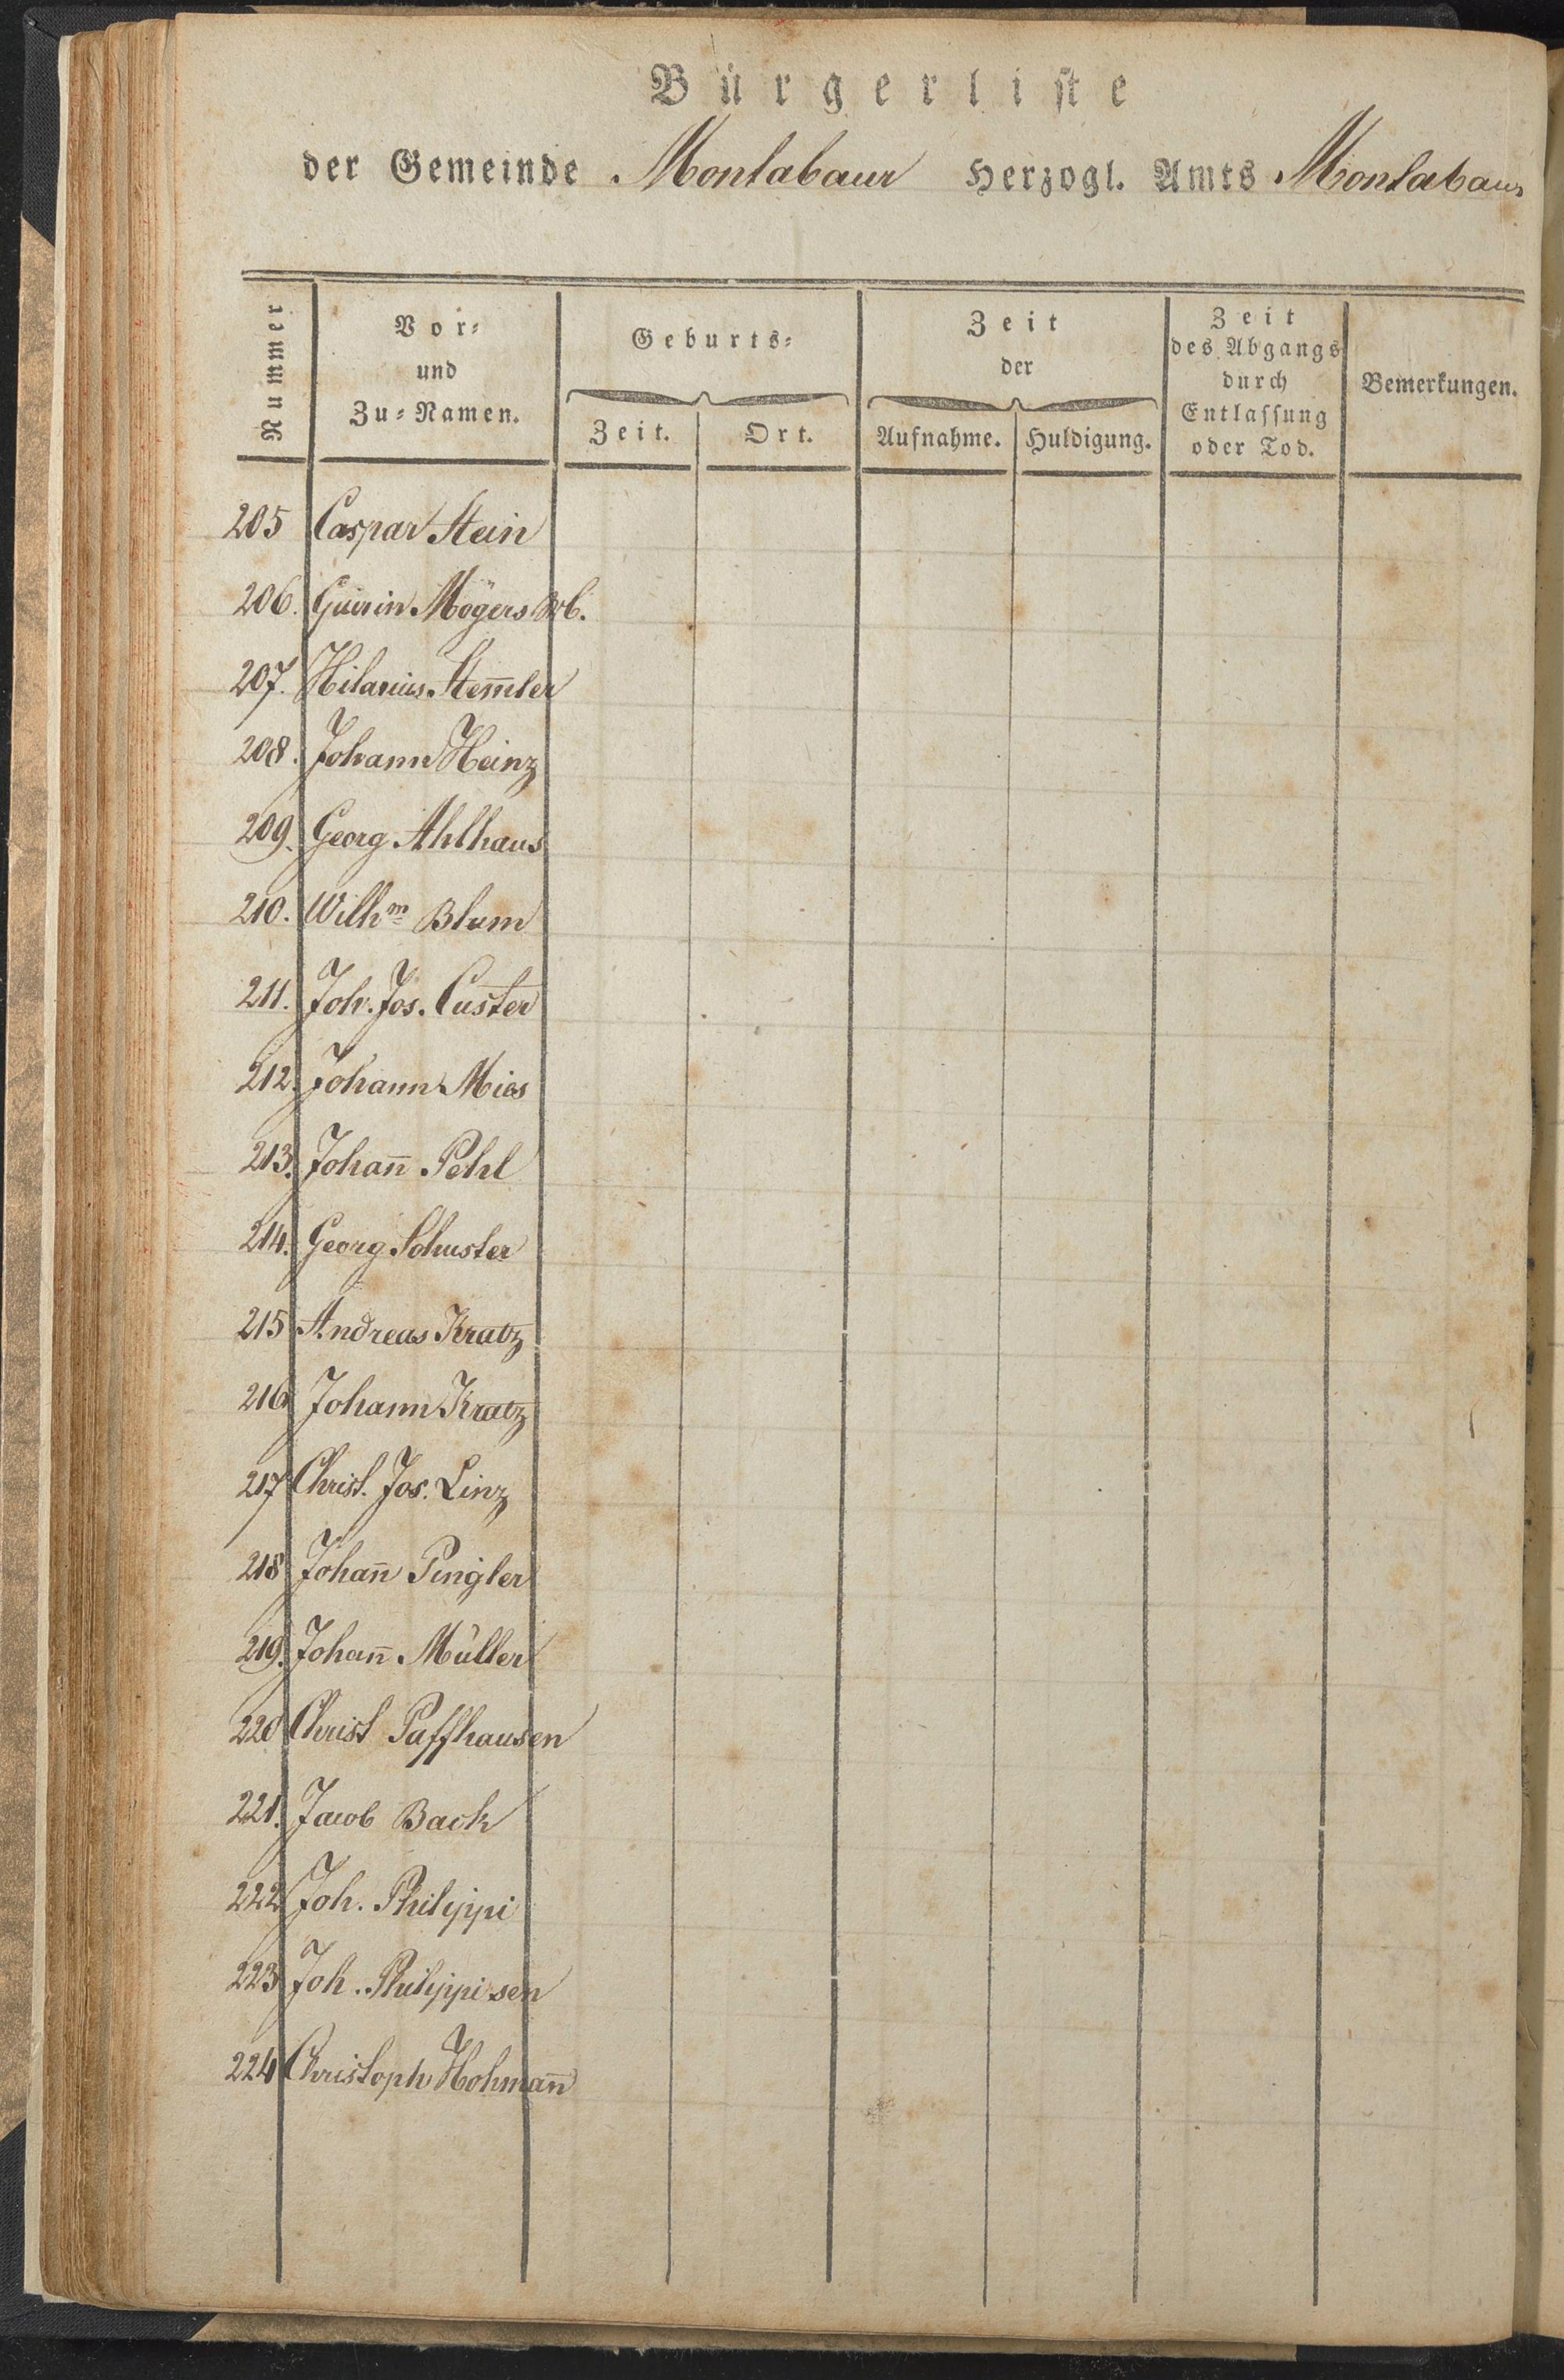 Bürgerliste
der Gemeinde Montabaur Herzogl. Amts Montabaur
Nummer
Vor-
und
Zu-Namen.
Geburts-
Zeit. Ort.
Zeit
der
Aufnahme. Huldigung.
Zeit
des Abgangs
durch
Entlassung
oder Tod.
Bemerkungen.
205 Caspar Stein
206. Mögers Wb.
207. Hilarius Stem̄ler
208. Johann Heinz
209. Georg Ahlhaus
210. Wilhm Blum
211. Joh. Jos. Custer
212. Johann Mies
213. Johan̄ Pehl
214. Georg Schuster
215 Andreas Kratz
216 Johann Kratz
217 Christ. Jos. Linz
218 Johan̄ Pingler
219. Johan̄ Müller
220 Christ Paffhausen
221. Jacob Bach
222 Joh. Philippi
223 Joh. Philippi sen
224 Christoph Hohman̄